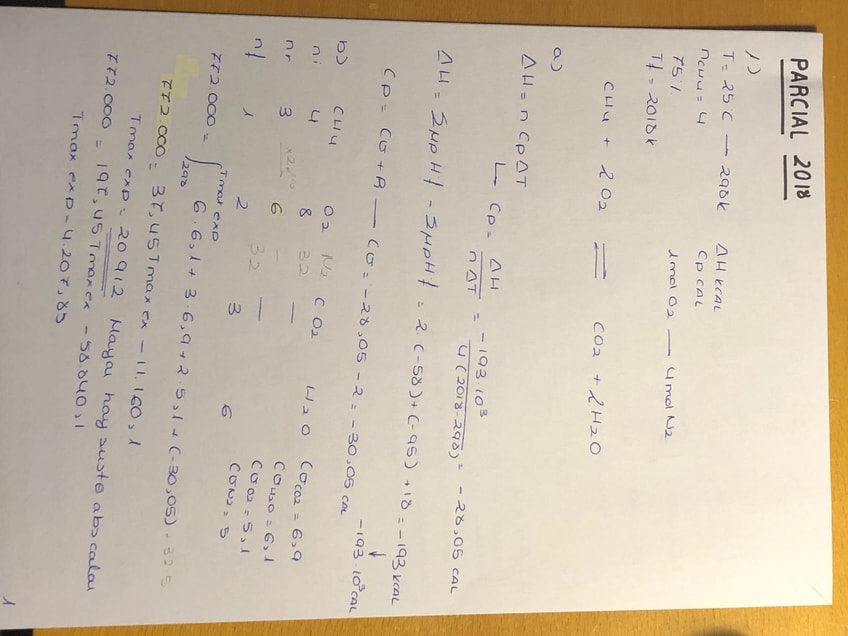 PARCIAL 2018
1) T = 25 C — 298k ΔH kcal
nCH4 = 4 Cp CAL
75% 1 mol O2 — 4 mol N2
Tf = 2018k
CH4 + 2O2 ⇌ CO2 + 2H2O
a)
ΔH = n Cp ΔT
↳ Cp = ΔH / nΔT = -193·10³ / 4(2018-298) = -28,05 CAL
ΔH = ΣnpHf - ΣnpHf = 2·(-58)+(-95)+18 = -193 kcal
↓
-193·10³ CAL
Cp = Cv + R — Cv = -28,05 - 2 = -30,05 CAL
b) CH4 O2 N2 CO2 H2O CvCO2 = 6,9
ni 4 8 32 — CvH2O = 6,1
nr 3 6 — CvO2 = 5,1
nf 1 2 32 — 3 6 CvN2 = 5
772.000 = ∫298 Tmax exp 6·6,1 + 3·6,9 + 2·5,1 + (-30,05) + 32·5
772.000 = 37,45 Tmax ex - 11.160,1
Tmax exp = 20912 Haya hay susto abs calor
772.000 = 197,45 Tmax ex - 58.840,1
Tmax exp = 4.207,85
1